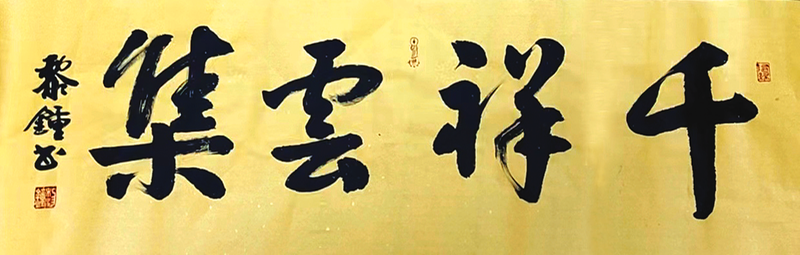 千祥雲集
黎鍾书